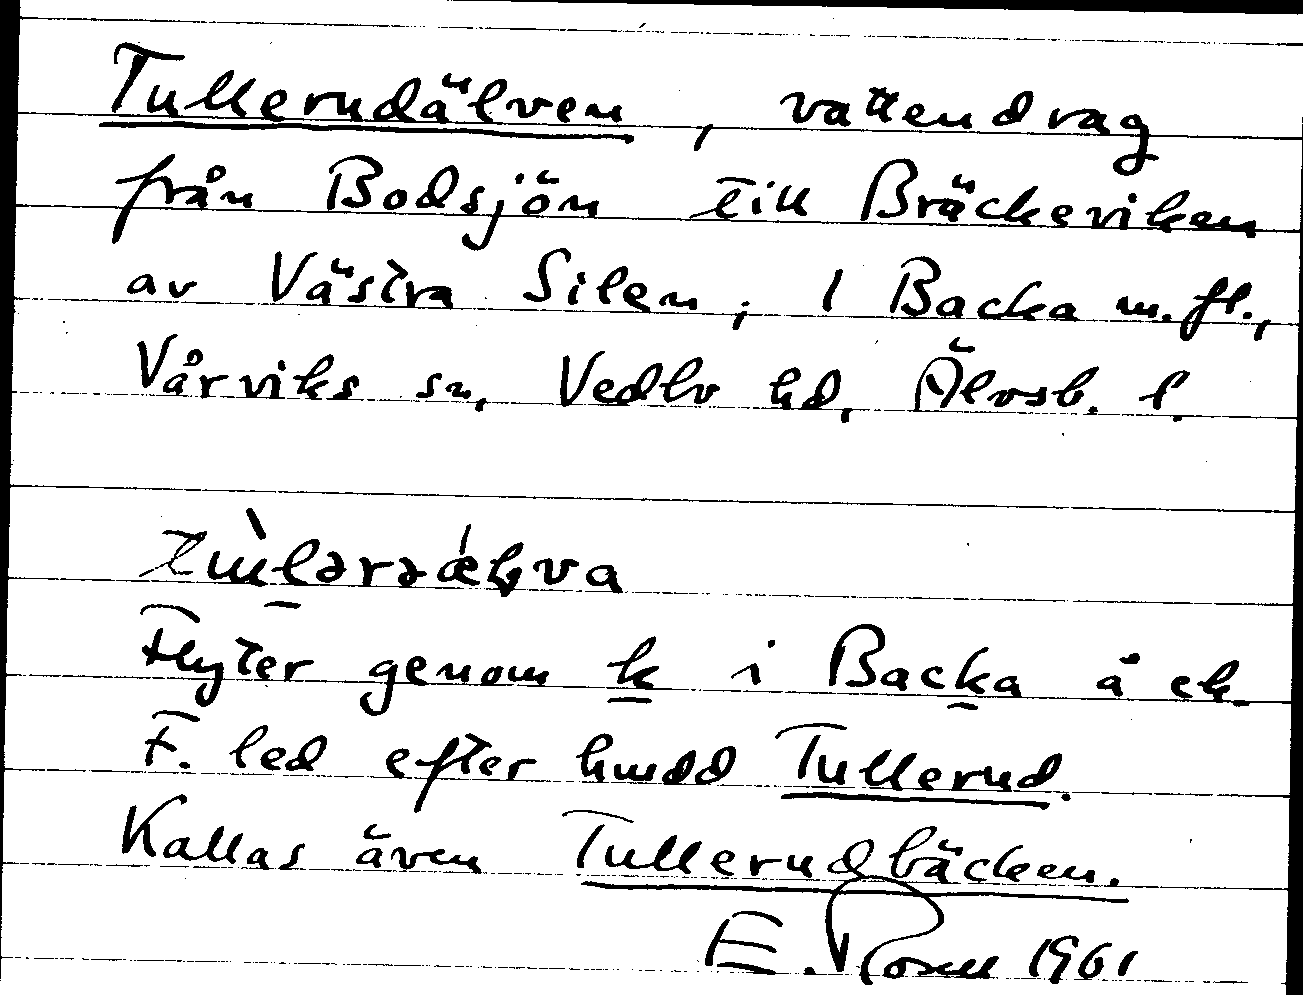 Tullerudälven, vattendrag
från Bodsjön till Bräckeviken
av Västra Silen, i Backa m.fl.,
Vårviks sn, Vedbo hd, Älvsb. l.
Flyter genom k i Backa å ek.
F. led efter hmdd Tullerud.
Kallas även Tullerudbäcken.
E. Rosell 1961